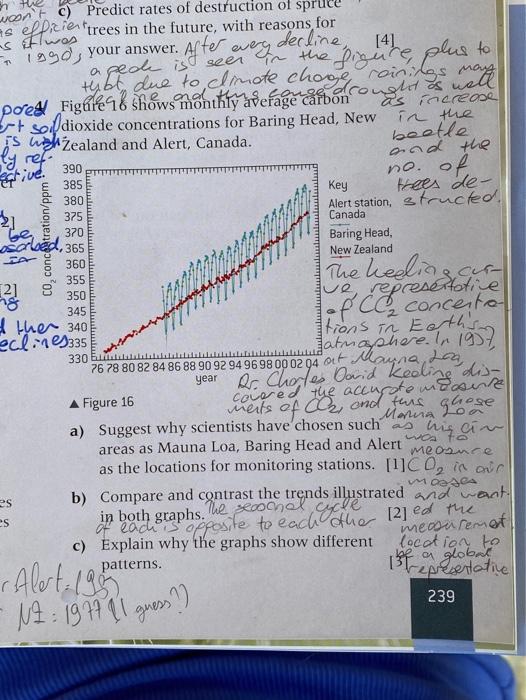 c) Predict rates of destruction of spruce
trees in the future, with reasons for
your answer. After every decline, [4]
a peak is seen in the figure, plus to
due to climate change, rainings may
decline and thus cause drought as well
as increase
in the
beetle
and the
no. of
trees de-
structed.
wasn't
is efficient
it was
1990,
pored
soil
is
ly ref-
ective.
2]
be
absorbed,
[2]
then
eclines
Figure 16 shows monthly average carbon
dioxide concentrations for Baring Head, New
Zealand and Alert, Canada.
CO2 concentration/ppm
390
385
380
375
370
365
360
355
350
345
340
335
330
76 78 80 82 84 86 88 90 92 94 96 98 00 02 04
year
Key
Alert station,
Canada
Baring Head,
New Zealand
The keeling cur-
ve representative
of CO2 concentra-
tions in Earth's
atmosphere. In 1957,
at Mauna Loa,
Dr. Charles David Keeling dis-
covered the accurate measure
ments of CO2, and thus chose
Mauna Loa
as his aim
was to
measure
CO2 in air
masses
and want-
ed the
measuremet
location to
be a global
representative
▲ Figure 16
a) Suggest why scientists have chosen such
areas as Mauna Loa, Baring Head and Alert
as the locations for monitoring stations. [1]
b) Compare and contrast the trends illustrated
in both graphs. [2]
The seasonal cycle
of each is opposite to each other
c) Explain why the graphs show different
patterns. [3]
es
es
Alert:
NZ: 1977 (I guess?)
239